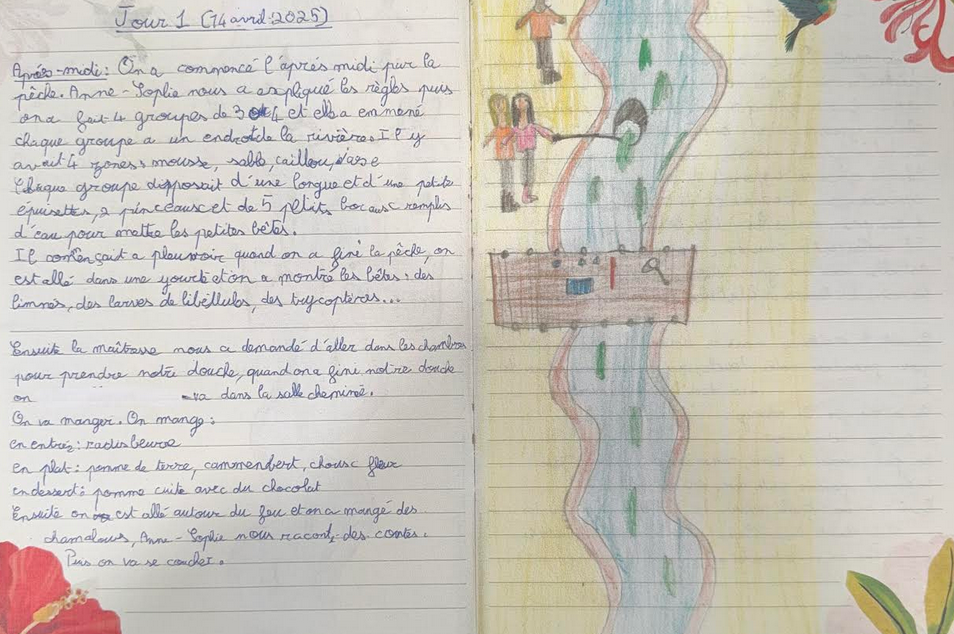 Jour 1 (14 avril 2025)
Après-midi: On a commencé l'après midi par la
pêche. Anne-Sophie nous a expliqué les règles puis
on a fait 4 groupes de 3 4 et elle a emmené
chaque groupe a un endroit de la rivière. Il y
avait 4 zones: mousse, sable, caillou, vase
Chaque groupe disposait d'une longue et d'une petite
épuisettes, 2 pinceaux et de 5 petits bocaux remplis
d'eau pour mettre les petites bêtes.
Il començait a pleuvoir quand on a finé la pêche, on
est allé dans une yourte et on a montré les bêtes: des
limnes, des larves de libéllules, des trycoptères...
Ensuite la maîtresse nous a demandé d'aller dans les chambres
pour prendre notre douche, quand on a finé notre douche
on va dans la salle cheminé.
On va manger. On mange:
en entrée: radis beurre
en plat: pomme de terre, cammenbert, choux fleur
en dessert: pomme cuite avec du chocolat
Ensuite on est allé autour du feu et on a mangé des
chamalows, Anne-Sophie nous racont des contes.
Puis on va se coucher.